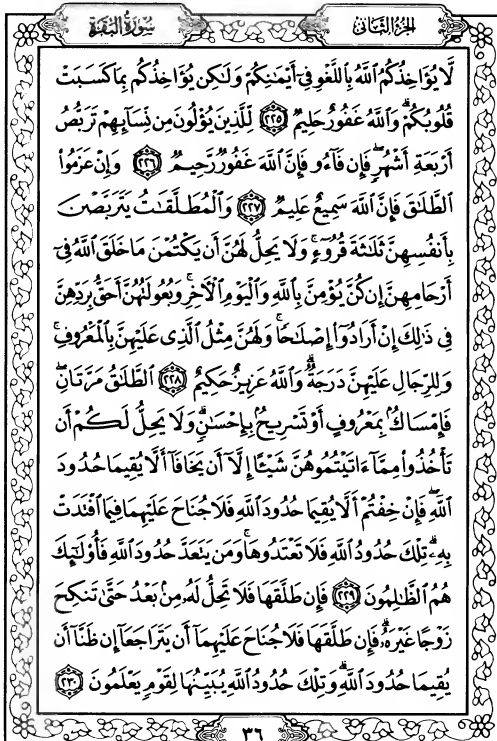 الجزء الثاني
سورة البقرة
لَّا يُؤَاخِذُكُمُ اللَّهُ بِاللَّغْوِ فِي أَيْمَٰنِكُمْ وَلَٰكِن يُؤَاخِذُكُم بِمَا كَسَبَتْ
قُلُوبُكُمْ ۗ وَاللَّهُ غَفُورٌ حَلِيمٌ ٢٢٥ لِّلَّذِينَ يُؤْلُونَ مِن نِّسَآئِهِمْ تَرَبُّصُ
أَرْبَعَةِ أَشْهُرٍ ۖ فَإِن فَآءُو فَإِنَّ اللَّهَ غَفُورٌ رَّحِيمٌ ٢٢٦ وَإِنْ عَزَمُوا۟
الطَّلَٰقَ فَإِنَّ اللَّهَ سَمِيعٌ عَلِيمٌ ٢٢٧ وَالْمُطَلَّقَٰتُ يَتَرَبَّصْنَ
بِأَنفُسِهِنَّ ثَلَٰثَةَ قُرُوٓءٍ ۚ وَلَا يَحِلُّ لَهُنَّ أَن يَكْتُمْنَ مَا خَلَقَ اللَّهُ فِيٓ
أَرْحَامِهِنَّ إِن كُنَّ يُؤْمِنَّ بِاللَّهِ وَالْيَوْمِ الْآخِرِ ۚ وَبُعُولَتُهُنَّ أَحَقُّ بِرَدِّهِنَّ
فِي ذَٰلِكَ إِنْ أَرَادُوٓا۟ إِصْلَٰحًا ۚ وَلَهُنَّ مِثْلُ الَّذِي عَلَيْهِنَّ بِالْمَعْرُوفِ ۚ
وَلِلرِّجَالِ عَلَيْهِنَّ دَرَجَةٌ ۗ وَاللَّهُ عَزِيزٌ حَكِيمٌ ٢٢٨ الطَّلَٰقُ مَرَّتَانِ ۖ
فَإِمْسَاكٌۢ بِمَعْرُوفٍ أَوْ تَسْرِيحٌۢ بِإِحْسَٰنٍ ۗ وَلَا يَحِلُّ لَكُمْ أَن
تَأْخُذُوا۟ مِمَّآ ءَاتَيْتُمُوهُنَّ شَيْـًٔا إِلَّآ أَن يَخَافَآ أَلَّا يُقِيمَا حُدُودَ
اللَّهِ ۖ فَإِنْ خِفْتُمْ أَلَّا يُقِيمَا حُدُودَ اللَّهِ فَلَا جُنَاحَ عَلَيْهِمَا فِيمَا افْتَدَتْ
بِهِۦ ۗ تِلْكَ حُدُودُ اللَّهِ فَلَا تَعْتَدُوهَا ۚ وَمَن يَتَعَدَّ حُدُودَ اللَّهِ فَأُو۟لَٰٓئِكَ
هُمُ الظَّٰلِمُونَ ٢٢٩ فَإِن طَلَّقَهَا فَلَا تَحِلُّ لَهُۥ مِنۢ بَعْدُ حَتَّىٰ تَنكِحَ
زَوْجًا غَيْرَهُۥ ۗ فَإِن طَلَّقَهَا فَلَا جُنَاحَ عَلَيْهِمَآ أَن يَتَرَاجَعَآ إِن ظَنَّآ أَن
يُقِيمَا حُدُودَ اللَّهِ ۗ وَتِلْكَ حُدُودُ اللَّهِ يُبَيِّنُهَا لِقَوْمٍ يَعْلَمُونَ ٢٣٠
٣٦